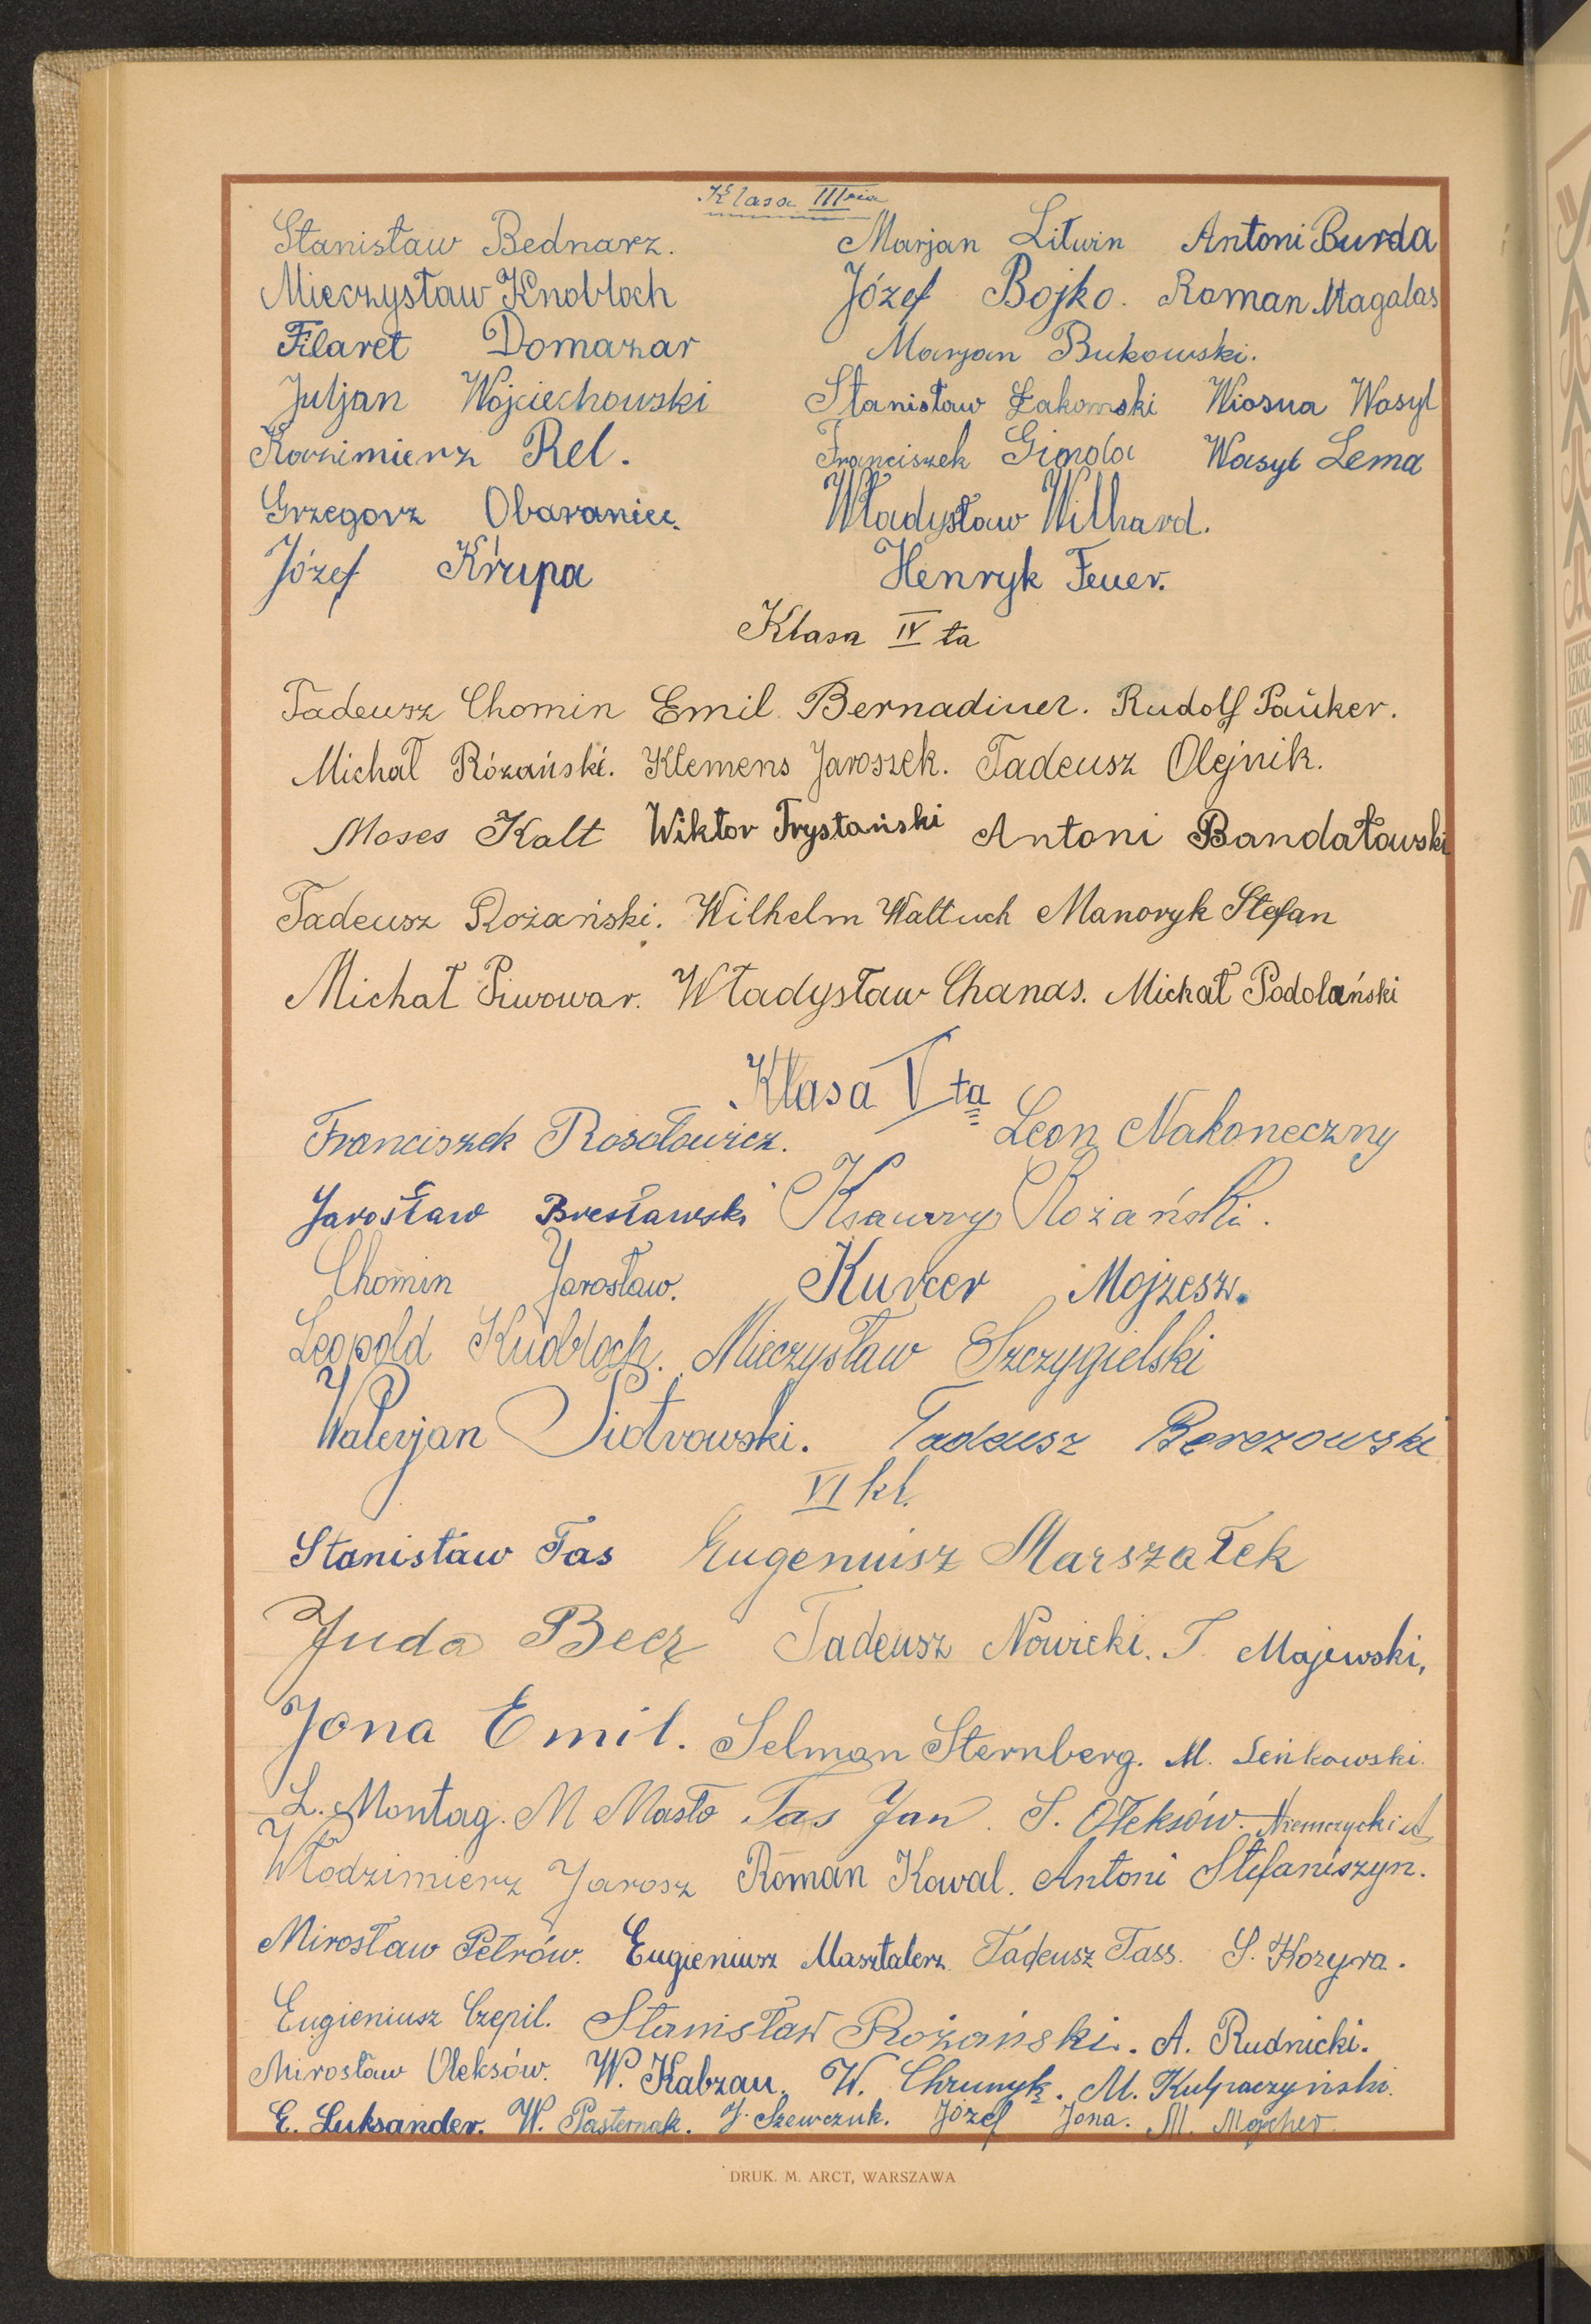 Klasa III cia
Stanisław Bednarz. Marjan Litwin Antoni Burda
Mieczysław Knobloch Józef Bojko. Roman Magalas
Filaret Domazar Marjan Bukowski.
Juljan Wojciechowski Stanisław Łakomski Wiosna Wasyl
Kazimierz Rel. Franciszek Giondla Wasyl Lema
Grzegorz Obaraniec. Władysław Wilhard.
Józef Krupa Henryk Feuer.
Klasa IV ta
Tadeusz Chomin Emil Bernadiner. Rudolf Paŭker.
Michał Różański. Klemens Jaroszek. Tadeusz Olejnik.
Moses Kalt Wiktor Trystański Antoni Bandałowski
Tadeusz Rożański. Wilhelm Waltuch Manoryk Stefan
Michał Piwowar. Władysław Chanas. Michał Podolański
Klasa V ta
Franciszek Rosołowicz. Leon Nakoneczny
Jarosław Bresławski Ksawery Rożański.
Chomin Jarosław. Kurcer Mojzesz.
Leopold Knobloch. Mieczysław Szczygielski
Walerjan Piotrowski. Tadeusz Berezowski
VI kl.
Stanisław Tas Eugeniusz Marszałek
Juda Beer Tadeusz Nowicki. T. Majewski,
Jona Emil. Selman Sternberg. M. Seńkowski.
L. Montag. M Masło Tas Jan. S. Ołeksów. Niemczycki A
Włodzimierz Jarosz Roman Kowal. Antoni Stefaniszyn.
Mirosław Petrów. Eugieniusz Masztalerz Tadeusz Tass. S. Kozyra.
Eugieniusz Czepil. Stanisław Rożański. A. Rudnicki.
Mirosław Oleksów. W. Kabzan. W. Chrunyk. M. Kulpaczyński.
E. Luksander. W. Pasternak. J. Szewczuk. Józef Jona. M.
DRUK. M. ARCT, WARSZAWA